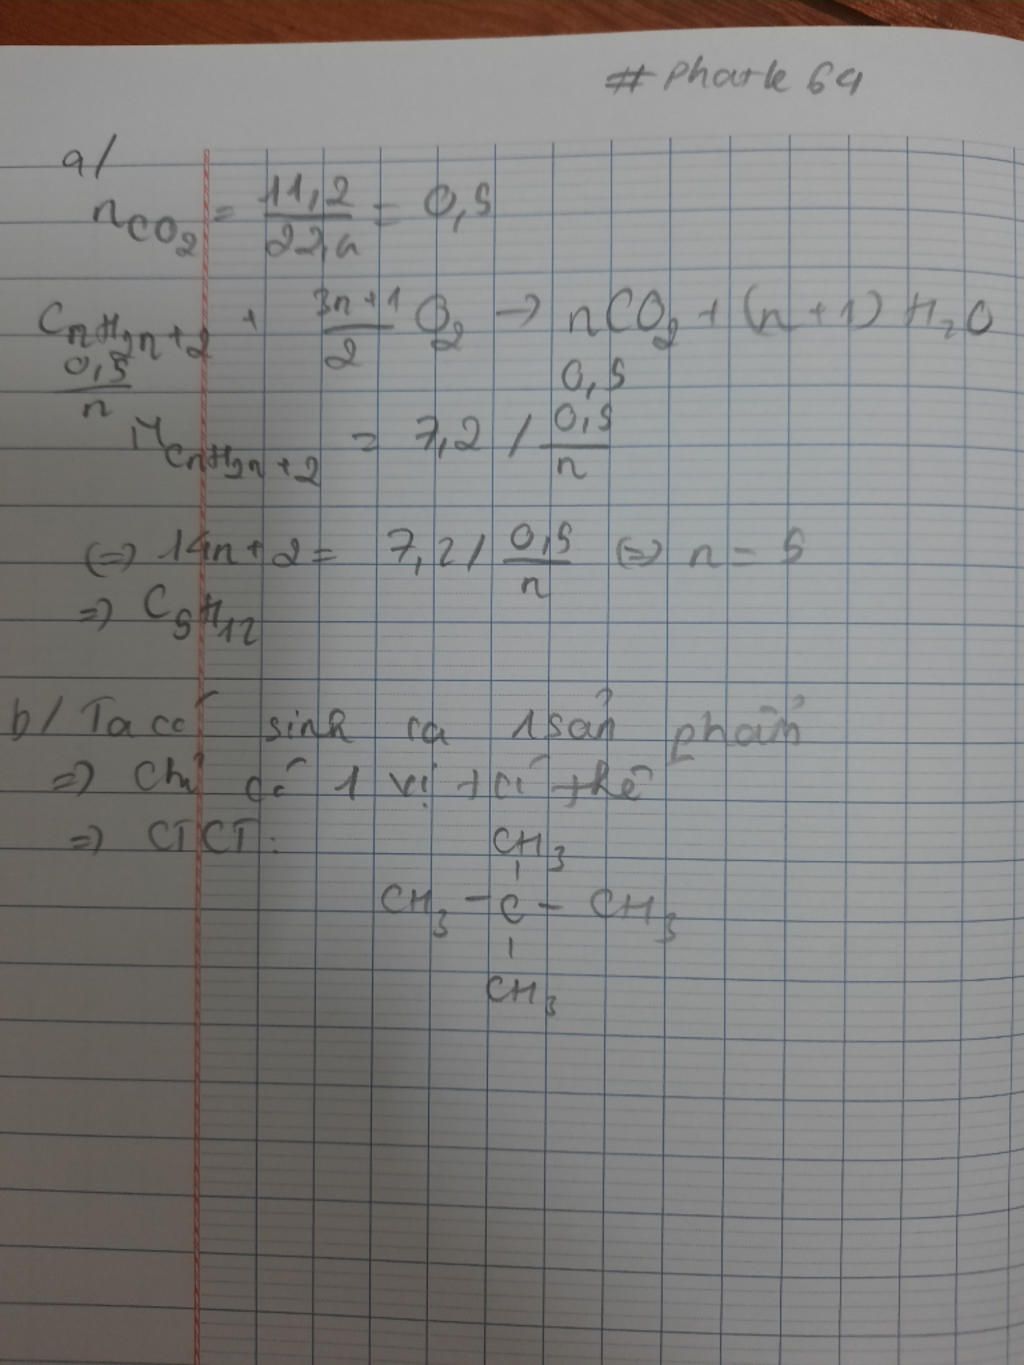 # Phatle 64
a/
nCO2 = 11,2/22,4 = 0,5
CnH2n+2 + 3n+1/2 O2 → nCO2 + (n+1) H2O
0,5/n 0,5
MCnH2n+2 = 7,2 / 0,5/n
(=) 14n+2 = 7,2 / 0,5/n (=) n = 5
=) C5H12
b/ Ta có sinh ra 1 sản phẩm
=) Chỉ có 1 vị trí thế
=) CTCT:
CH3
CH3 - C - CH3
CH3